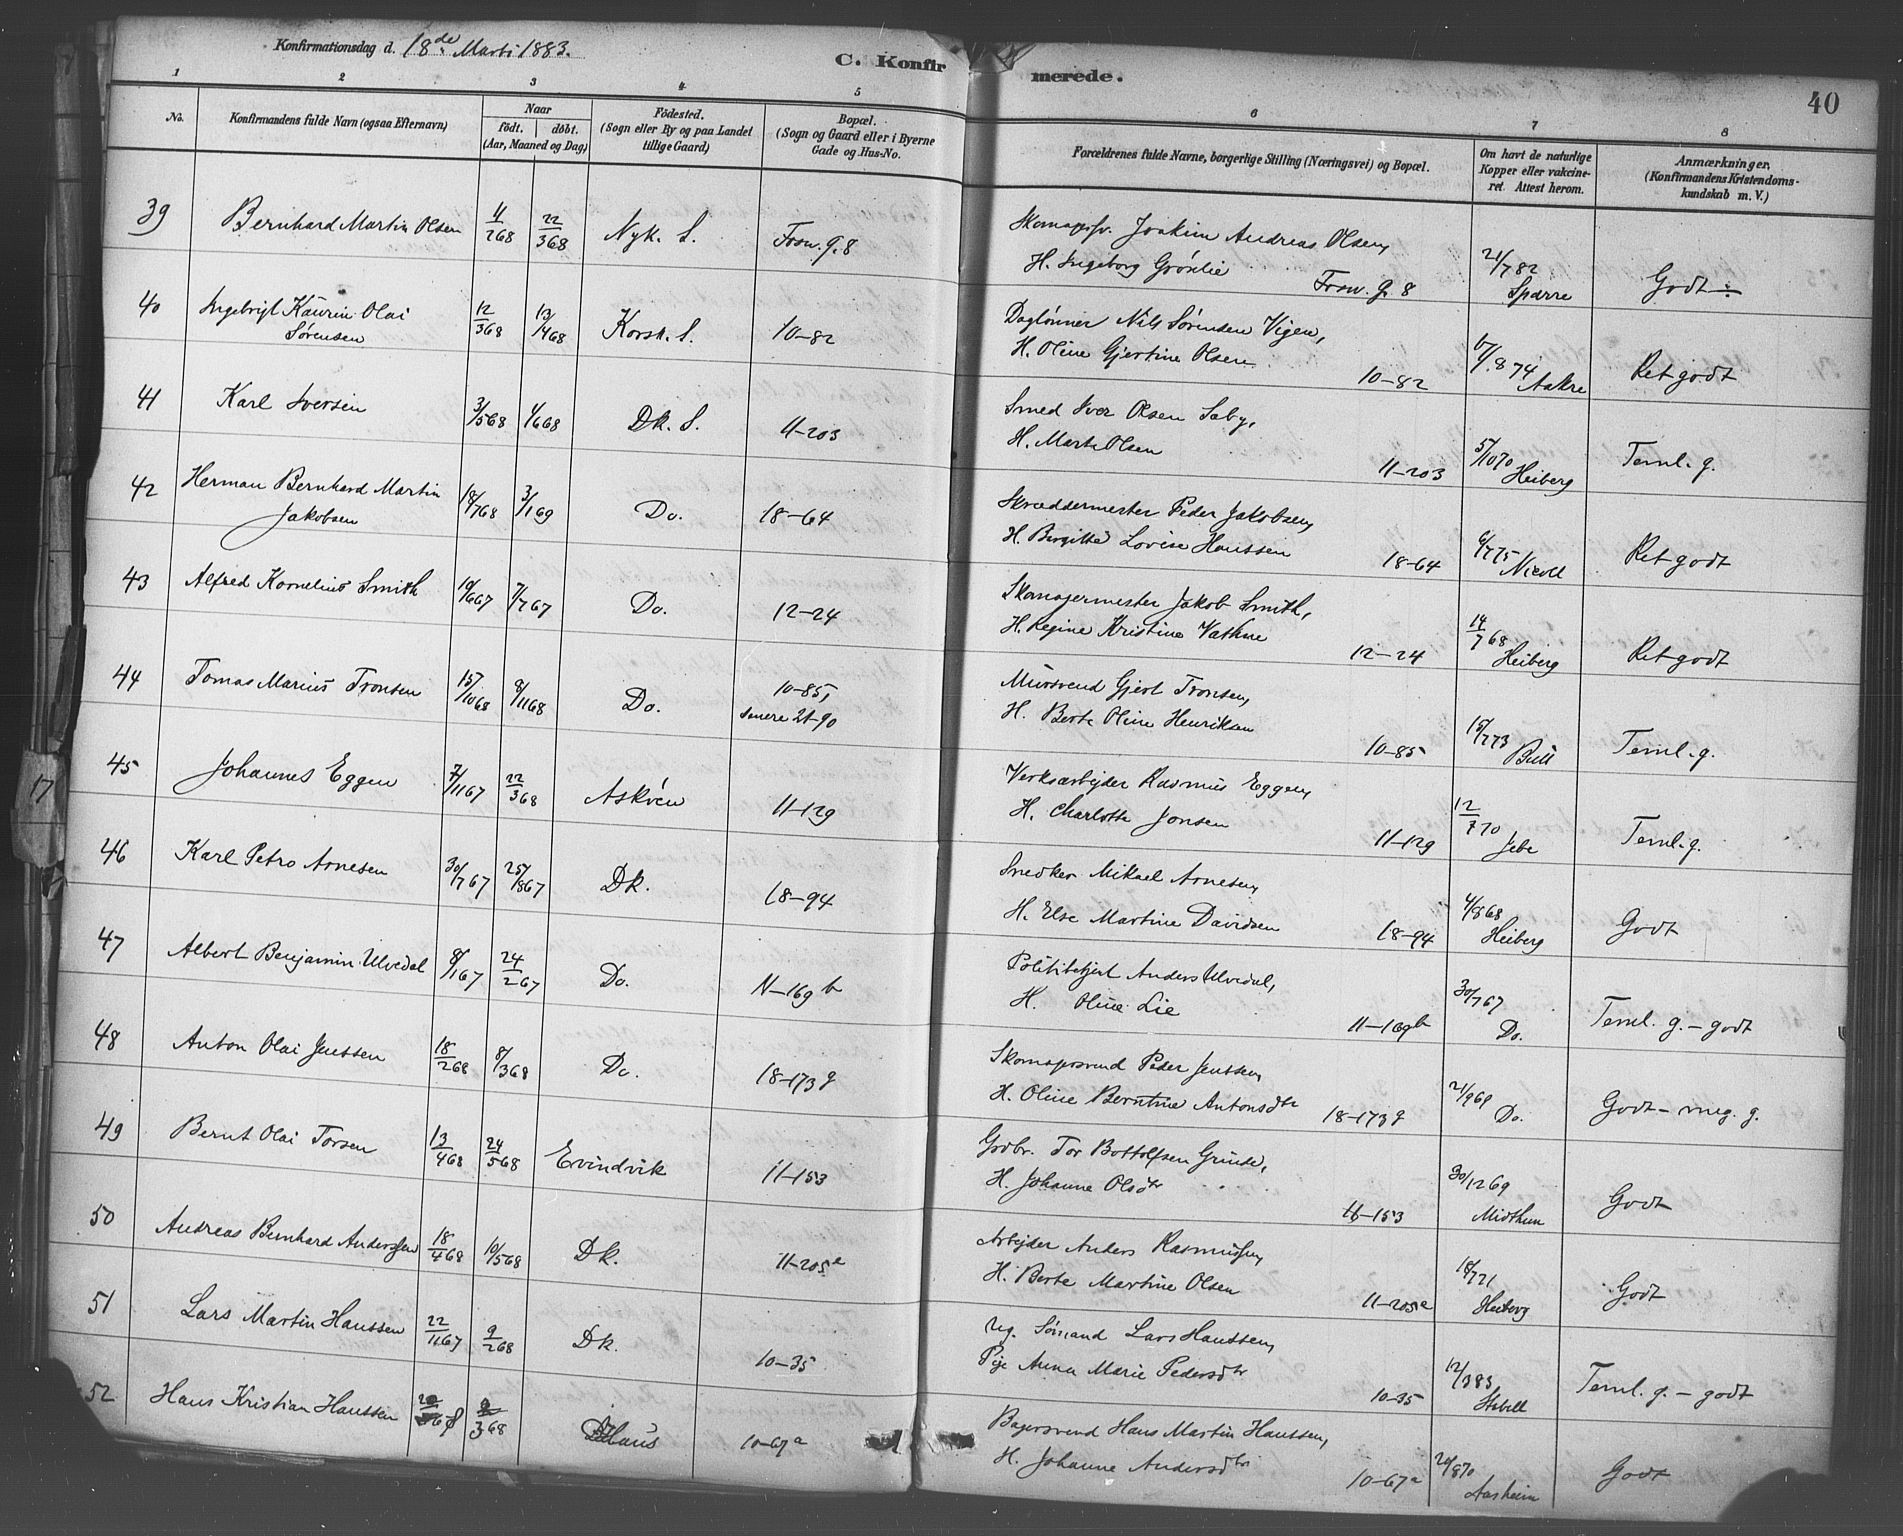 Konfirmationsdag d. 18de Marts 1883.
C. Konfirmerede.
40
1 2 3 4 5 6 7 8
No.
Konfirmandens fulde Navn (ogsaa Efternavn)
Naar
födt. döbt.
(Aar, Maaned og Dag)
Födested.
(Sogn eller By og paa Landet
tillige Gaard)
Bopæl.
(Sogn og Gaard eller i Byerne
Gade og Hus-No.
Forældrenes fulde Navne, borgerlige Stilling (Næringsvei) og Bopæl.
Om havt de naturlige
Kopper eller vakcine-
ret. Attest herom.
Anmærkninger.
(Konfirmandens Kristendoms-
kundskab m. V.)
39 Bernhard Martin Olsen 11/268 22/368 Nyk. S. 9.8 Joakim Andreas Olsen,
H. Ingeborg Grönlie 9.8 21/782 Sparre Godt ÷
40 Ingebrigt Kaurin Olai
Sørensen 12/368 13/468 Korsk. S. 10-82 Daglønner Nils Sørensen Vigen,
H. Oline Gjertine Olsen 10-82 /874 Aakre Ret godt
41 Karl Iversen 3/568 1/668 Dk. S. 11-203 Smed Iver Olsen Sæby,
H. Marte Olsen 11-203 5/1070 Heiberg Teml. g.
42 Herman Bernhard Martin
Jakobsen 18/768 3/169 Do. 18-64 Skræddermester Peder Jakobsen,
H. Birgitte Lovise Hanssen 18-64 9/775 Nicoll Ret godt
43 Alfred Kornelius Smith 10/667 7/767 Do. 12-24 Skomagermester Jakob Smith,
H. Regine Kristine Vathne 12-24 14/768 Heiberg Ret godt
44 Tomas Marius Tronsen 15/1068 8/1168 Do. 10-85, senere 21-90 Mursvend Gjert Tronsen,
H. Berte Oline Henriksen 10-85 15/773 Bull Teml. g.
45 Johannes Eggen 7/1167 22/368 Askvöll 11-129 Verksarbejder Rasmus Eggen,
H. Charlotte Jonsen 11-129 12/770 Jebe Teml. g.
46 Karl Petro Arnesen 30/767 25/867 Dk. 18-94 Snedker Mikael Arnesen,
H. Else Martine Davidsen 18-94 4/868 Heiberg Godt
47 Albert Benjamin Ulvedal 8/167 24/267 Do. 11-169 b Politibetjent Anders Ulvedal,
H. Oline Lie 11-169b 30/767 Do. Teml. g. - godt
48 Anton Olai Jenssen 18/268 8/368 Do. 18-173 g Skomagersvend Peder Jenssen,
H. Oline Berntine Antonsdtr 18-173 g 21/969 Do. Godt - meg. g.
49 Bernt Olai Torsen 13/468 24/568 Evindvik 11-153 Grdbr. Tor Bottolfsen Grinde,
H. Johanne Olsdtr 11-153 30/1269 Midthun Godt
50 Andreas Bernhard Anderssen 18/468 10/568 Dk. 11-205 e Arbejder Anders Rasmussen,
H. Berte Martine Olsen 11-205 e 18/771 Heiberg Godt
51 Lars Martin Hanssen 22/1167 9/268 Dk. 10-35 Ug. Sömand Lars Hanssen,
Pige Anna Marie Pedersdtr 10-35 12/383 Stabell Teml. g. - godt
52 Hans Kristian Hanssen 20/ 68 9/368 Haus 10-67 a Bagersvend Hans Martin Hanssen,
H. Johanne Andersdtr 10-67 a 20/870 Aasheim Godt
17